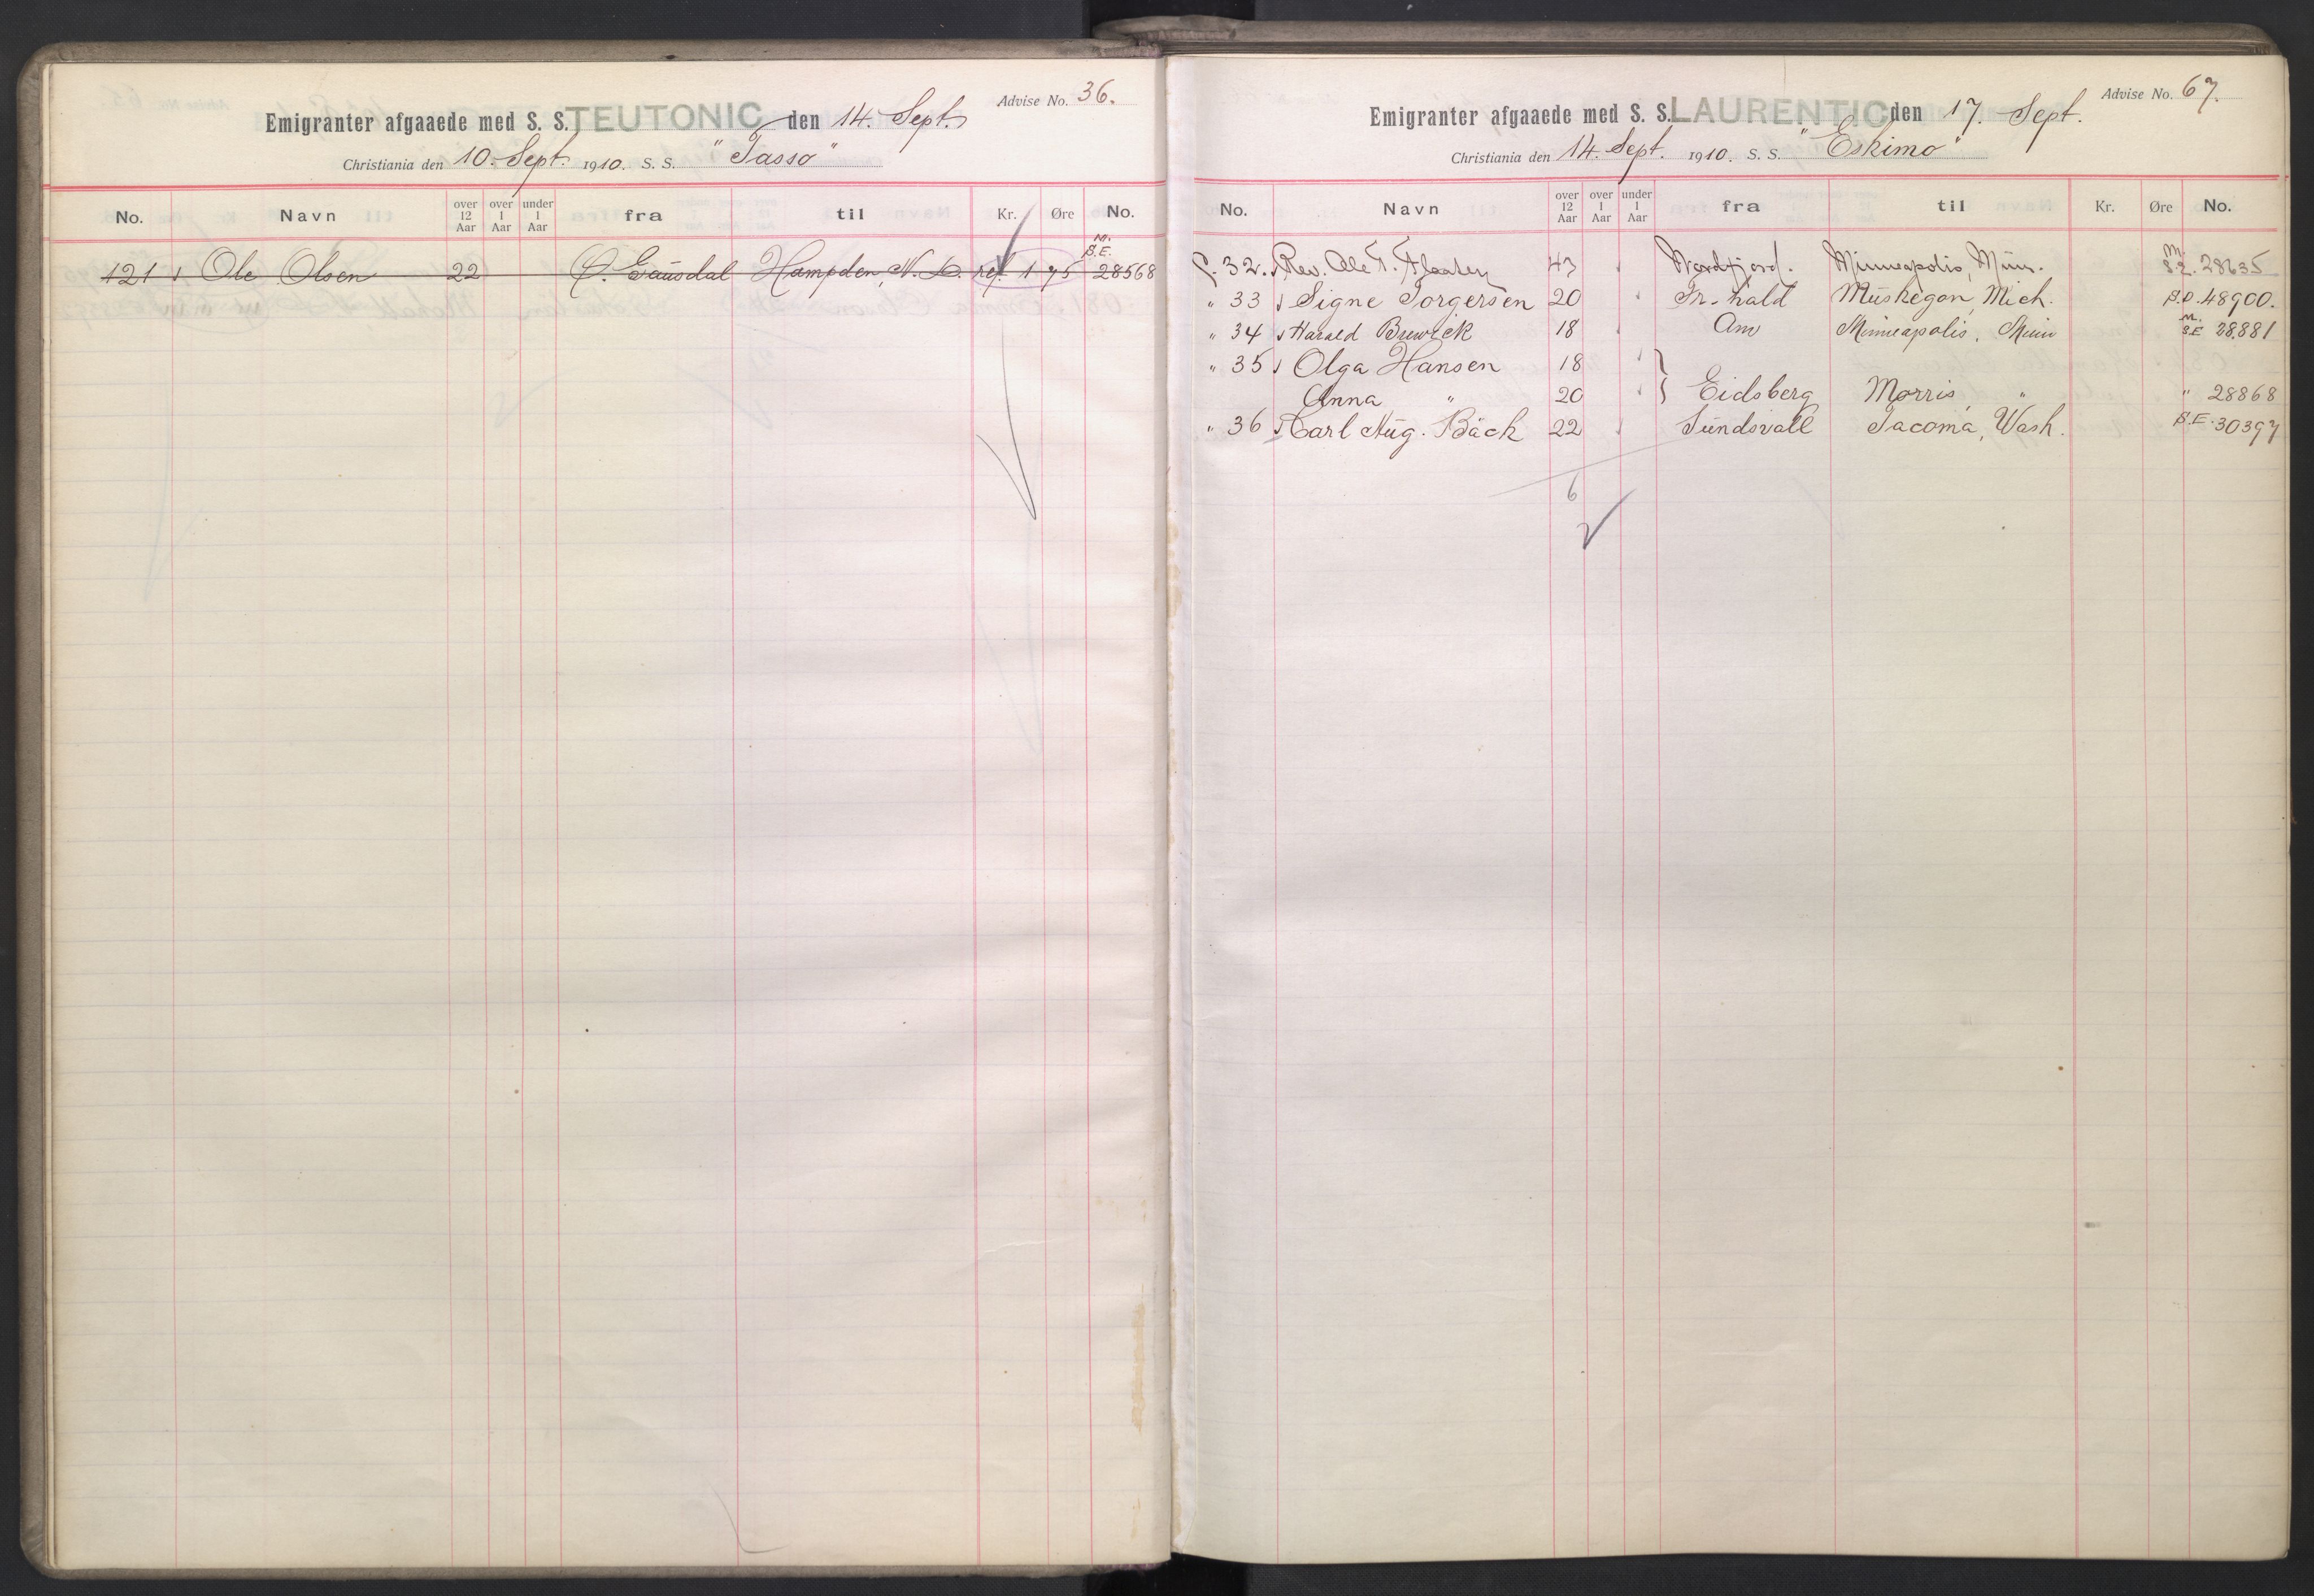 Advise No. 36.
Emigranter afgaaede med S. S. TEUTONIC den 14. Sept.
Christiania den 10. Sept. 1910. S. S. "Tasso"
No. Navn over 12 Aar over 1 Aar under 1 Aar fra til Kr. Øre No.
M.
S.E.
121 Ole Olsen 22 Ø. Gausdal Hampden, N. D. ref. 1 75 28568
Advise No. 67.
Emigranter afgaaede med S. S. LAURENTIC den 17. Sept.
Christiania den 14. Sept. 1910. S. S. "Eskimo"
No. Navn over 12 Aar over 1 Aar under 1 Aar fra til Kr. Øre No.
32. Rev. Ole T. Flaaten 43 Nordfjord. Minneapolis, Minn. M. S.E. 28635
" 33 Signe Torgersen 20 Fr.hald Muskegon, Mich. S.O. 48900.
" 34 Harald Brewick 18 Am Minneapolis, Minn M. S.E 28881
" 35 Olga Hansen 18
Anna " 20 } Eidsberg Morris, " " 28868
" 36 Carl Aug. Bäck 22 Sundsvall Tacoma, Wash. S.E. 30397
6